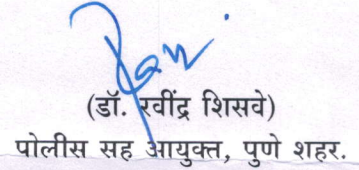 (डॉ. रवींद्र शिसवे)
पोलीस सह आयुक्त, पुणे शहर.